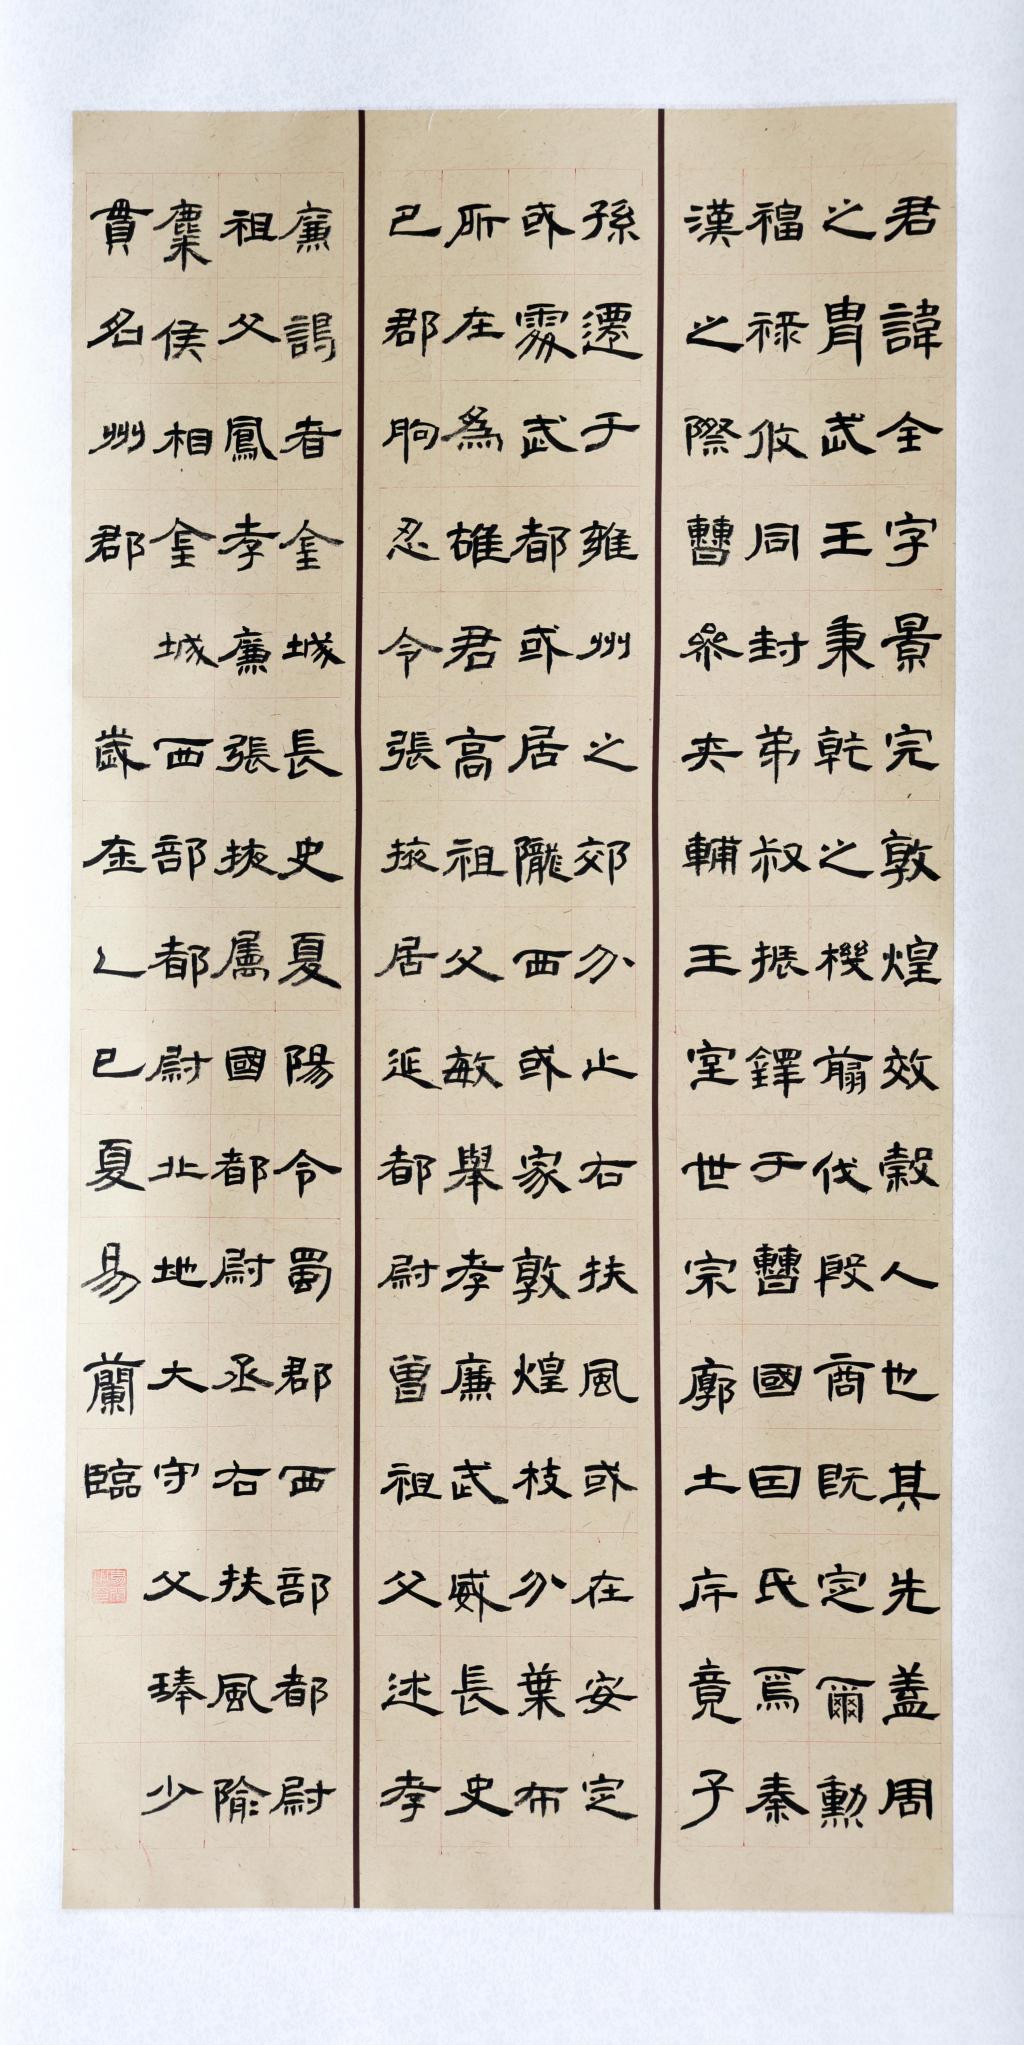 君諱全字景完敦煌效穀人也其先蓋周
之胄武王秉乾之機翦伐殷商既定爾勳
福祿攸同封弟叔振鐸于曹國因氏焉秦
漢之際曹參夾輔王室世宗廓土斥竟子
孫遷于雍州之郊分止右扶風或在安定
或處武都或居隴西或家敦煌枝分葉布
所在為雄君高祖父敏舉孝廉武威長史
巴郡朐忍令張掖居延都尉曾祖父述孝
廉謁者金城長史夏陽令蜀郡西部都尉
祖父鳳孝廉張掖屬國都尉丞右扶風隃
麋侯相金城西部都尉北地大守父琫少
貫名州郡 歲在乙巳夏易蘭臨